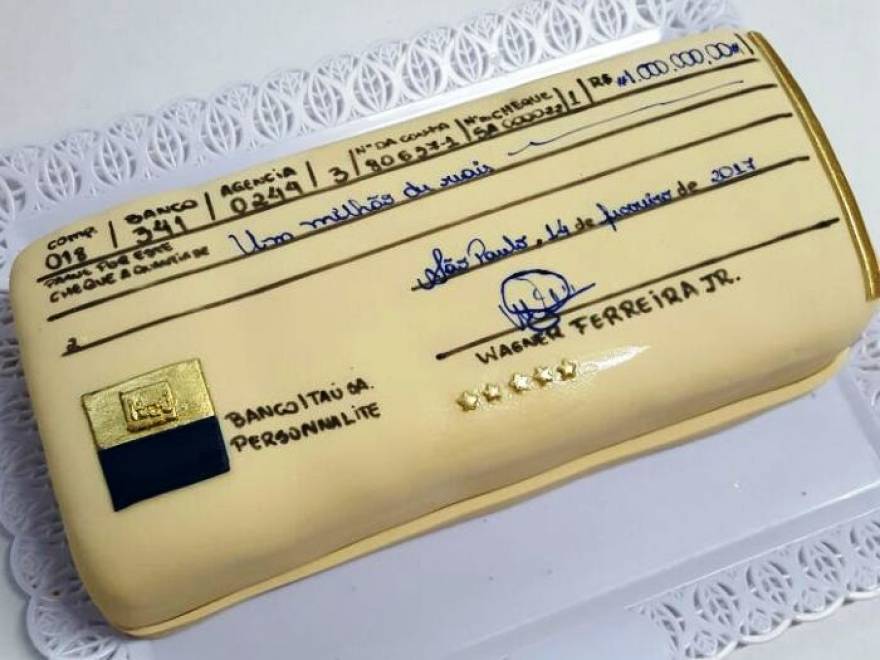 COMP. | BANCO | AGENCIA | Nº DA CONTA | Nº CHEQUE | R$ #1.000.000,00#
018 | 341 | 0244 | 3 / 80657-1 | SA 000022 | 1
PAGUE POR ESTE
CHEQUE A QUANTIA DE Um milhão de reais
São Paulo, 14 de fevereiro de 2017
a
WAGNER FERREIRA JR.
itaú
BANCO ITAÚ SA.
PERSONNALITE